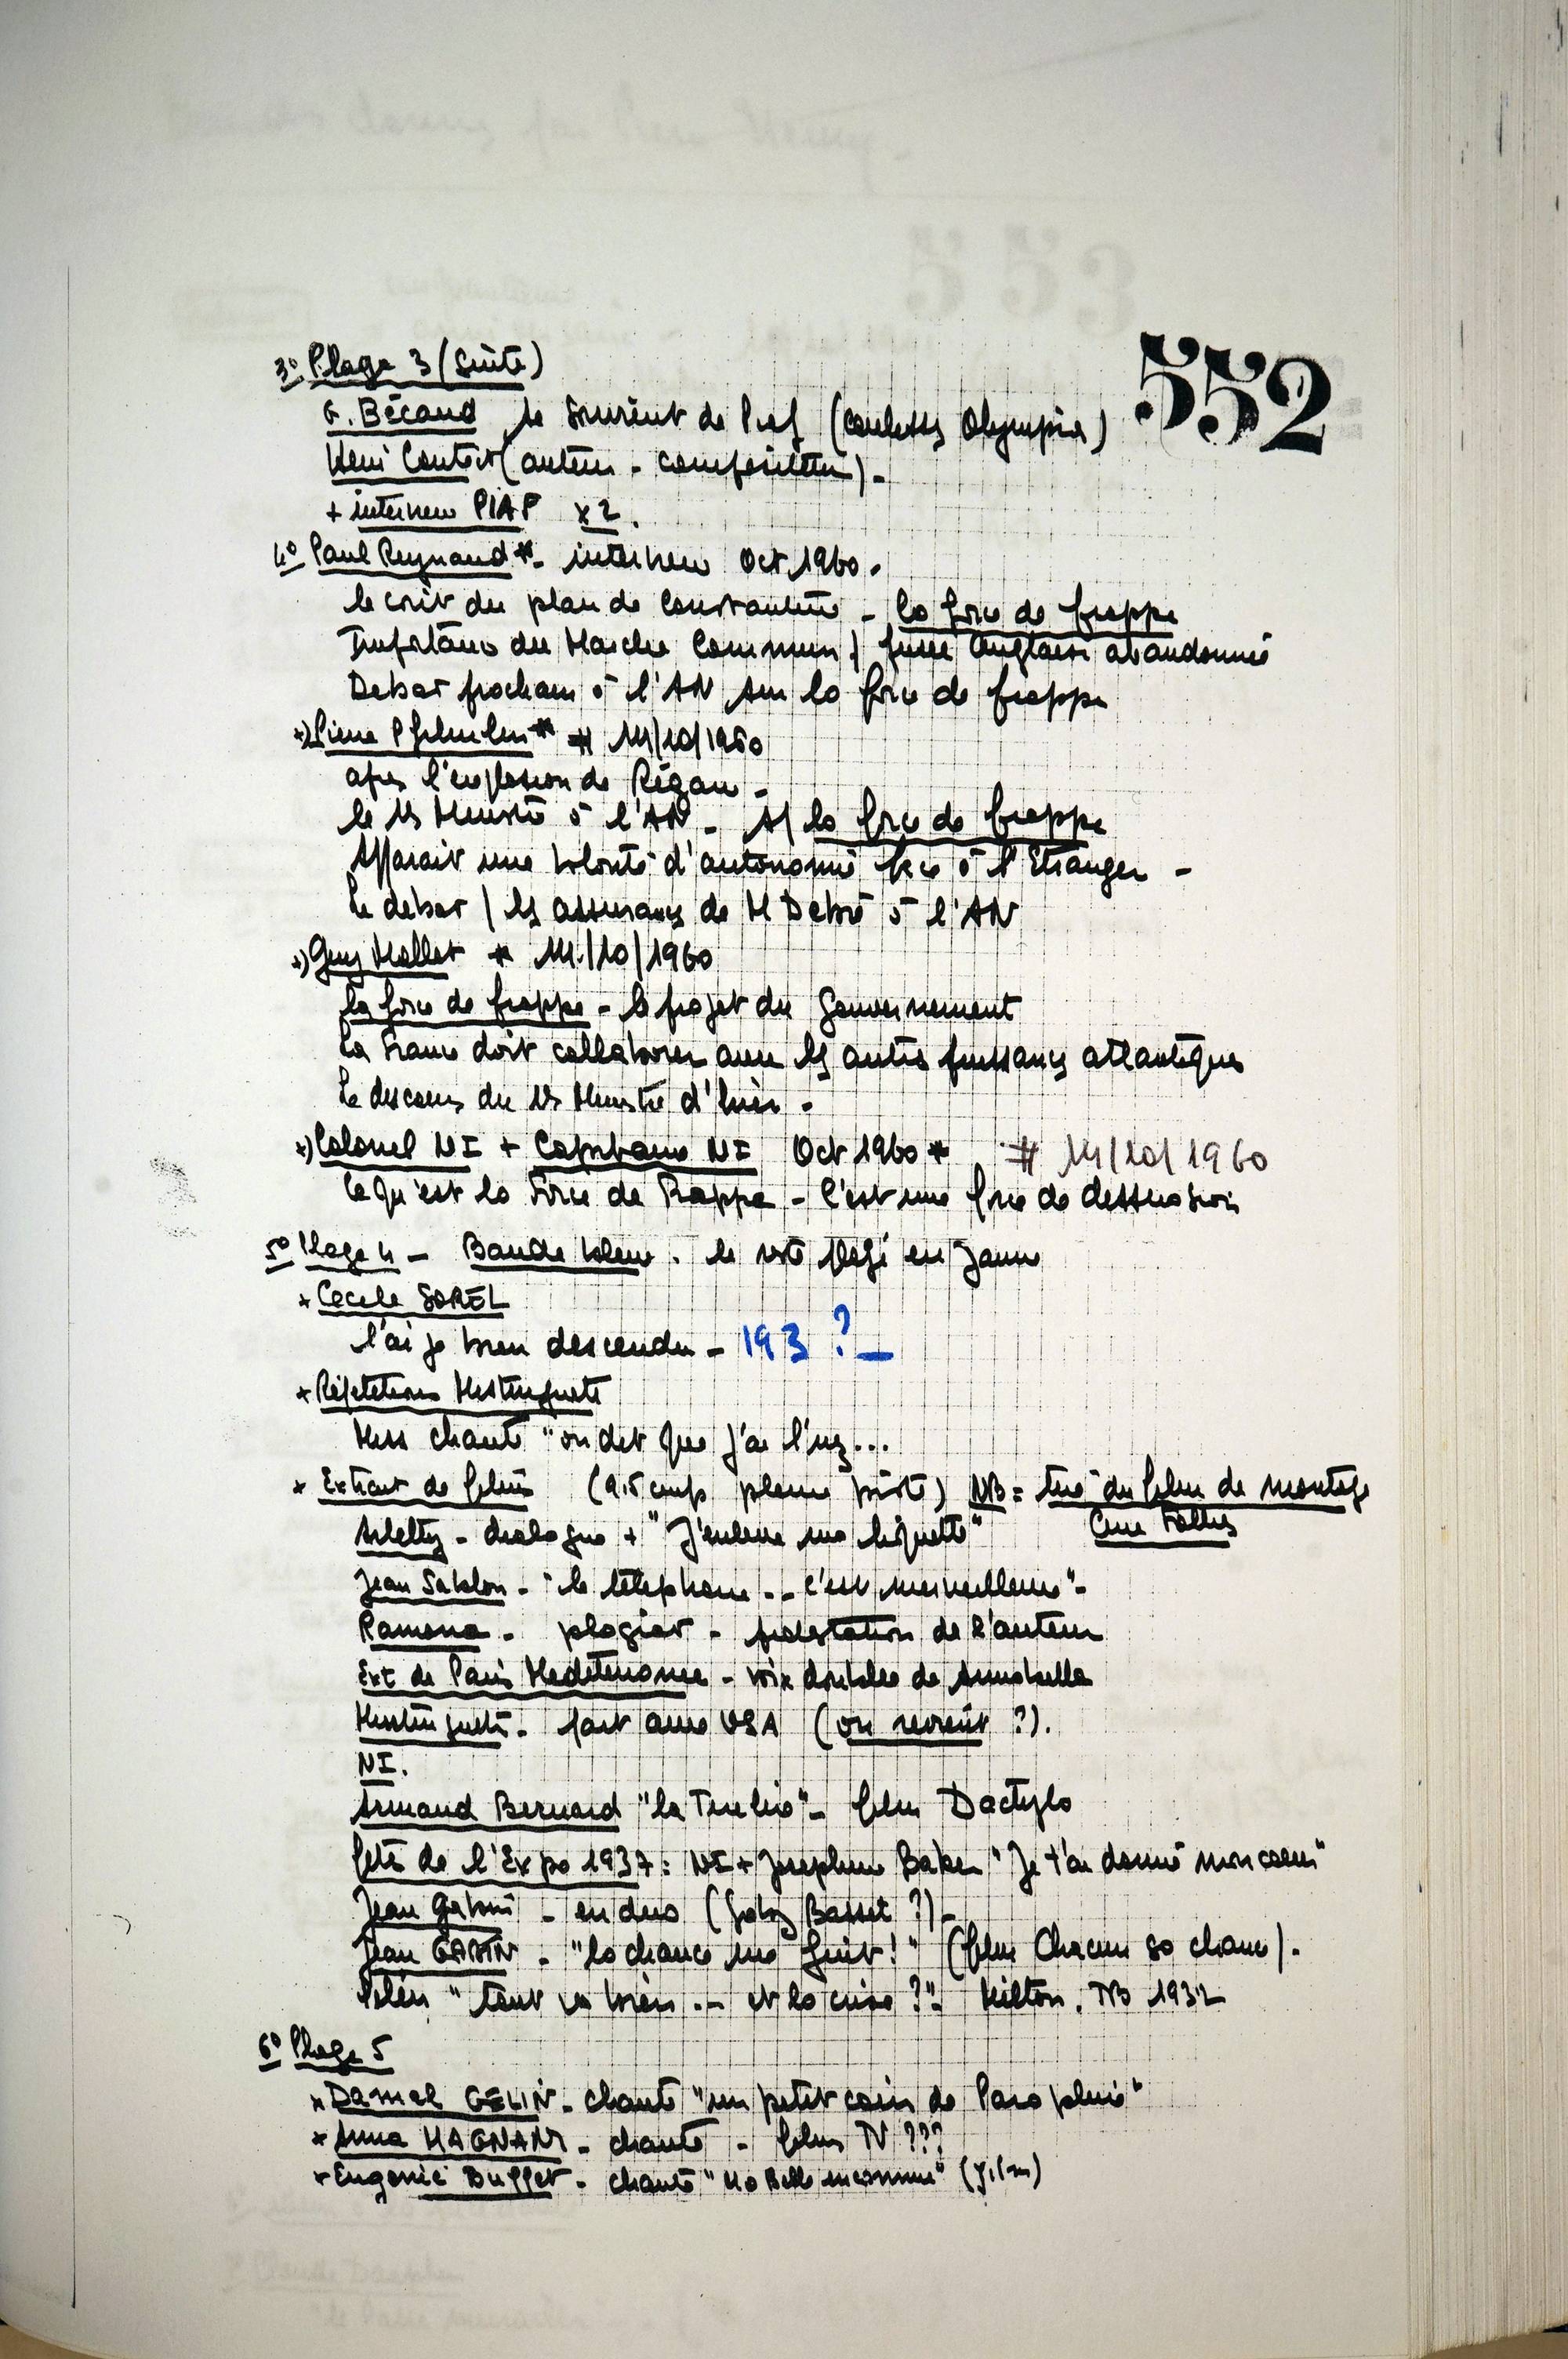 552
3° Plage 3 (suite)
G. Bécaud le souvient de Piaf (coulisses Olympia)
Henri Contet (auteur - compositeur).-
+ interview PIAF x2.
4° Paul Reynaud *- interview Oct 1960.
le coût du plan de Constantine - la force de frappe
Importance du Marché Commun / fusée Anglaise abandonnée
Debat prochain à l'AN sur la force de frappe
+) Pierre Pflimlin * # 14/10/1960
après l'explosion de Régan -
le 1er Ministre à l'AN - s/ la force de frappe
Apparait une volonté d'autonomie face à l'Etranger -
Le debat / les assurances de M Debré à l'AN
+) Guy Mollet * 14/10/1960
la force de frappe - le projet du Gouvernement
La France doit collaborer avec les autres puissances atlantiques
Le discours du 1er Ministre d'hier -
+) Colonel NI + Capitaine NI Oct 1960 * # 14/10/1960
Ce qu'est la Force de Frappe - C'est une force de dissuasion
5° Plage 4 - Bande bleue . le reste en Jaune
+ Cecile SOREL
l'ai je bien descendu - 193 ? -
+ Répétitions Mistinguett
Miss chante "on dit que j'ai l'nez...
+ Extrait de films (9,5 cm/s pleine piste) NB = tiré du film de montage
Ciné Folies
Arletty - dialogue + "J'enlève ma liquette"
Jean Sablon - "le téléphone -- c'est merveilleux"-
Ramona - plagiat - protestation de l'auteur
Ext de Paris Mediterranée - voix doublée de Annabella
Mistinguett - part aux USA (on revient ?).
NI.
Armand Bernard "la Tu"- film Dactylo
fête de l'Expo 1937 : NI + Josephine Baker "Je t'ai donné mon coeur"
Jean Gabin - en duo (Gaby Basset ?)-
Jean GABIN - "la chance me fuit !" (film Chacun sa chance).-
"tout va bien .-- et la crise ?". Milton. NB 1932
6° Plage 5
+ Daniel GELIN - chante "un petit coin de Parapluie"
+ Anna MAGNANI - chante - film TV ???
+ Eugenie Buffet - chante "Ma Belle inconnue" (film)